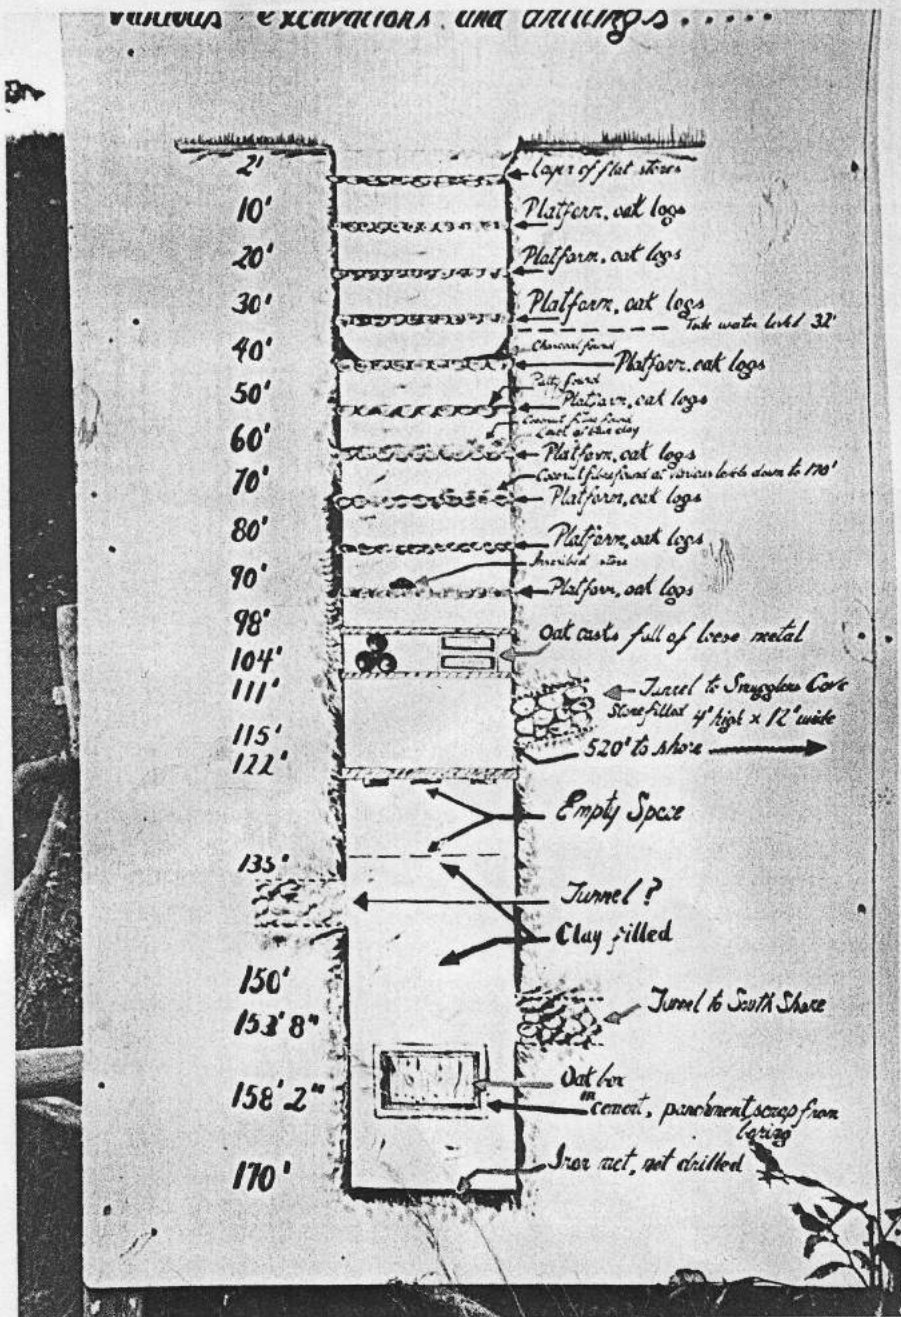 Various excavations and drillings.....
2'
Layer of flat stones
10'
Platform, oak logs
20'
Platform, oak logs
30'
Platform, oak logs
Tide water level 32'
40'
Charcoal found
Platform, oak logs
50'
Putty found
Platform, oak logs
60'
Coconut fibre found
Layer of blue clay
Platform, oak logs
70'
Coconut fibre found at various levels down to 170'
Platform, oak logs
80'
Platform, oak logs
90'
Inscribed stone
Platform, oak logs
98'
Oak casks full of loose metal
104'
111'
Tunnel to Smugglers Cove
Stone filled 4' high x 12' wide
115'
520' to shore
122'
Empty Space
135'
Tunnel?
Clay filled
150'
Tunnel to South Shore
153' 8"
Oak box
in
158' 2"
cement, parchment scrap from
boring
Iron met, not drilled
170'